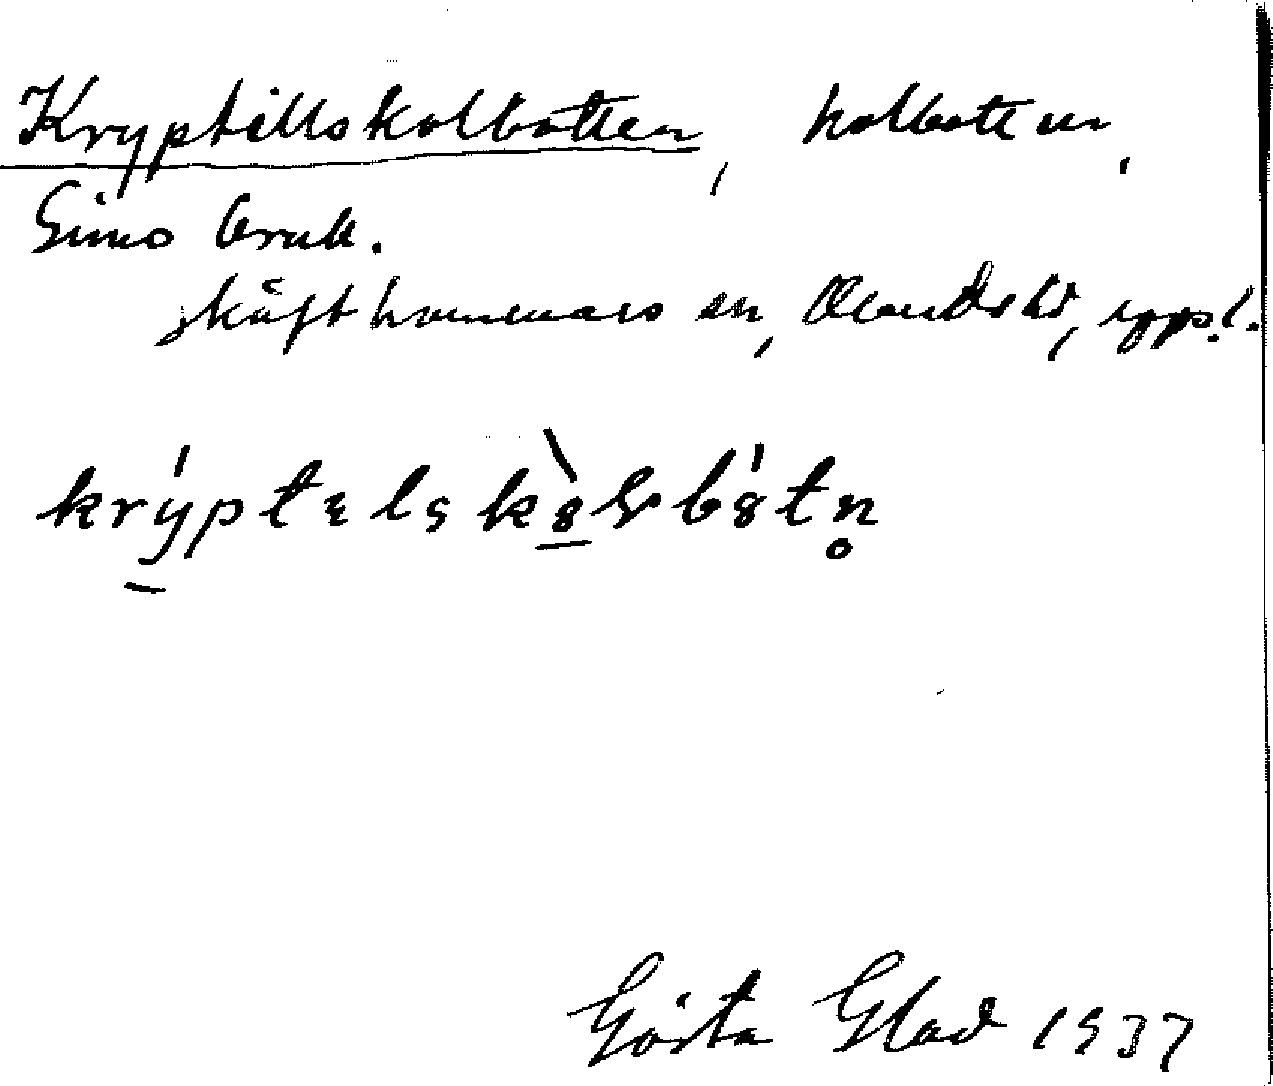 Kryptillskolbotten, kolbotten,
Gimo bruk.
skäfthammars sn, Olands hd, uppl.
krýptɛlskòlbótn̥
Gösta Glad 1937